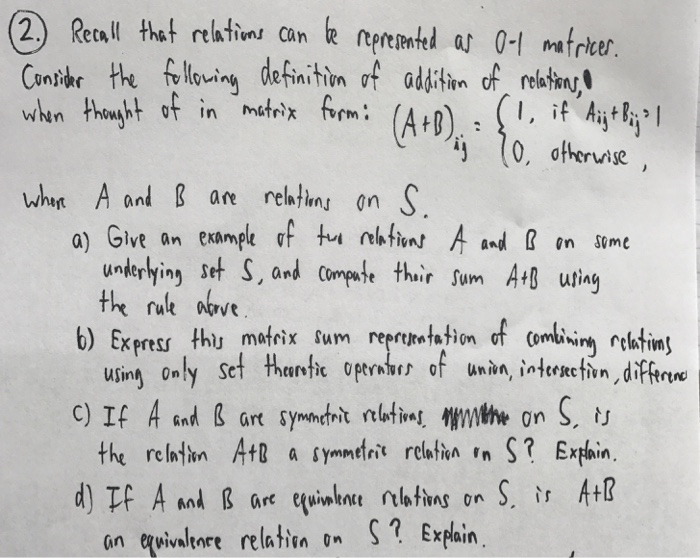 (2.) Recall that relations can be represented as 0-1 matrices.
Consider the following definition of addition of relations,
when thought of in matrix form: (A+B)ij = { 1, if Aij+Bij=1
0, otherwise,
where A and B are relations on S.
a) Give an example of two relations A and B on some
underlying set S, and compute their sum A+B using
the rule above.
b) Express this matrix sum representation of combining relations
using only set theoretic operators of union, intersection, difference
c) If A and B are symmetric relations on S, is
the relation A+B a symmetric relation on S? Explain.
d) If A and B are equivalence relations on S, is A+B
an equivalence relation on S? Explain.